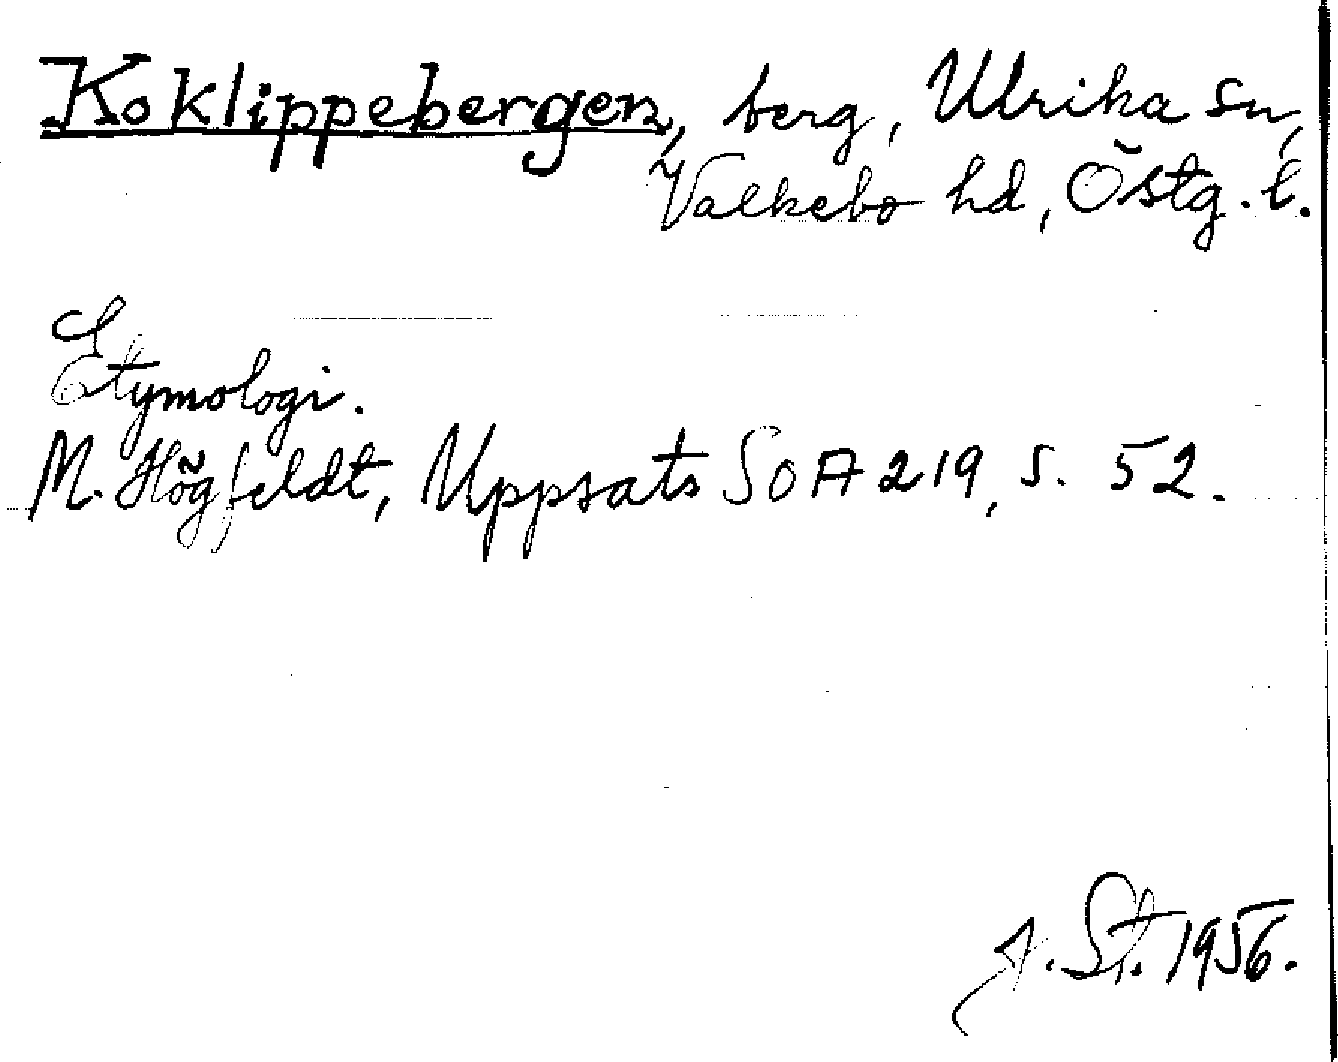 Koklippebergen, berg, Ulrika sn,
Valkebo hd, Östg. l.
Etymologi.
M. Högfeldt, Uppsats SOA 219, s. 52.
A. St. 1956.